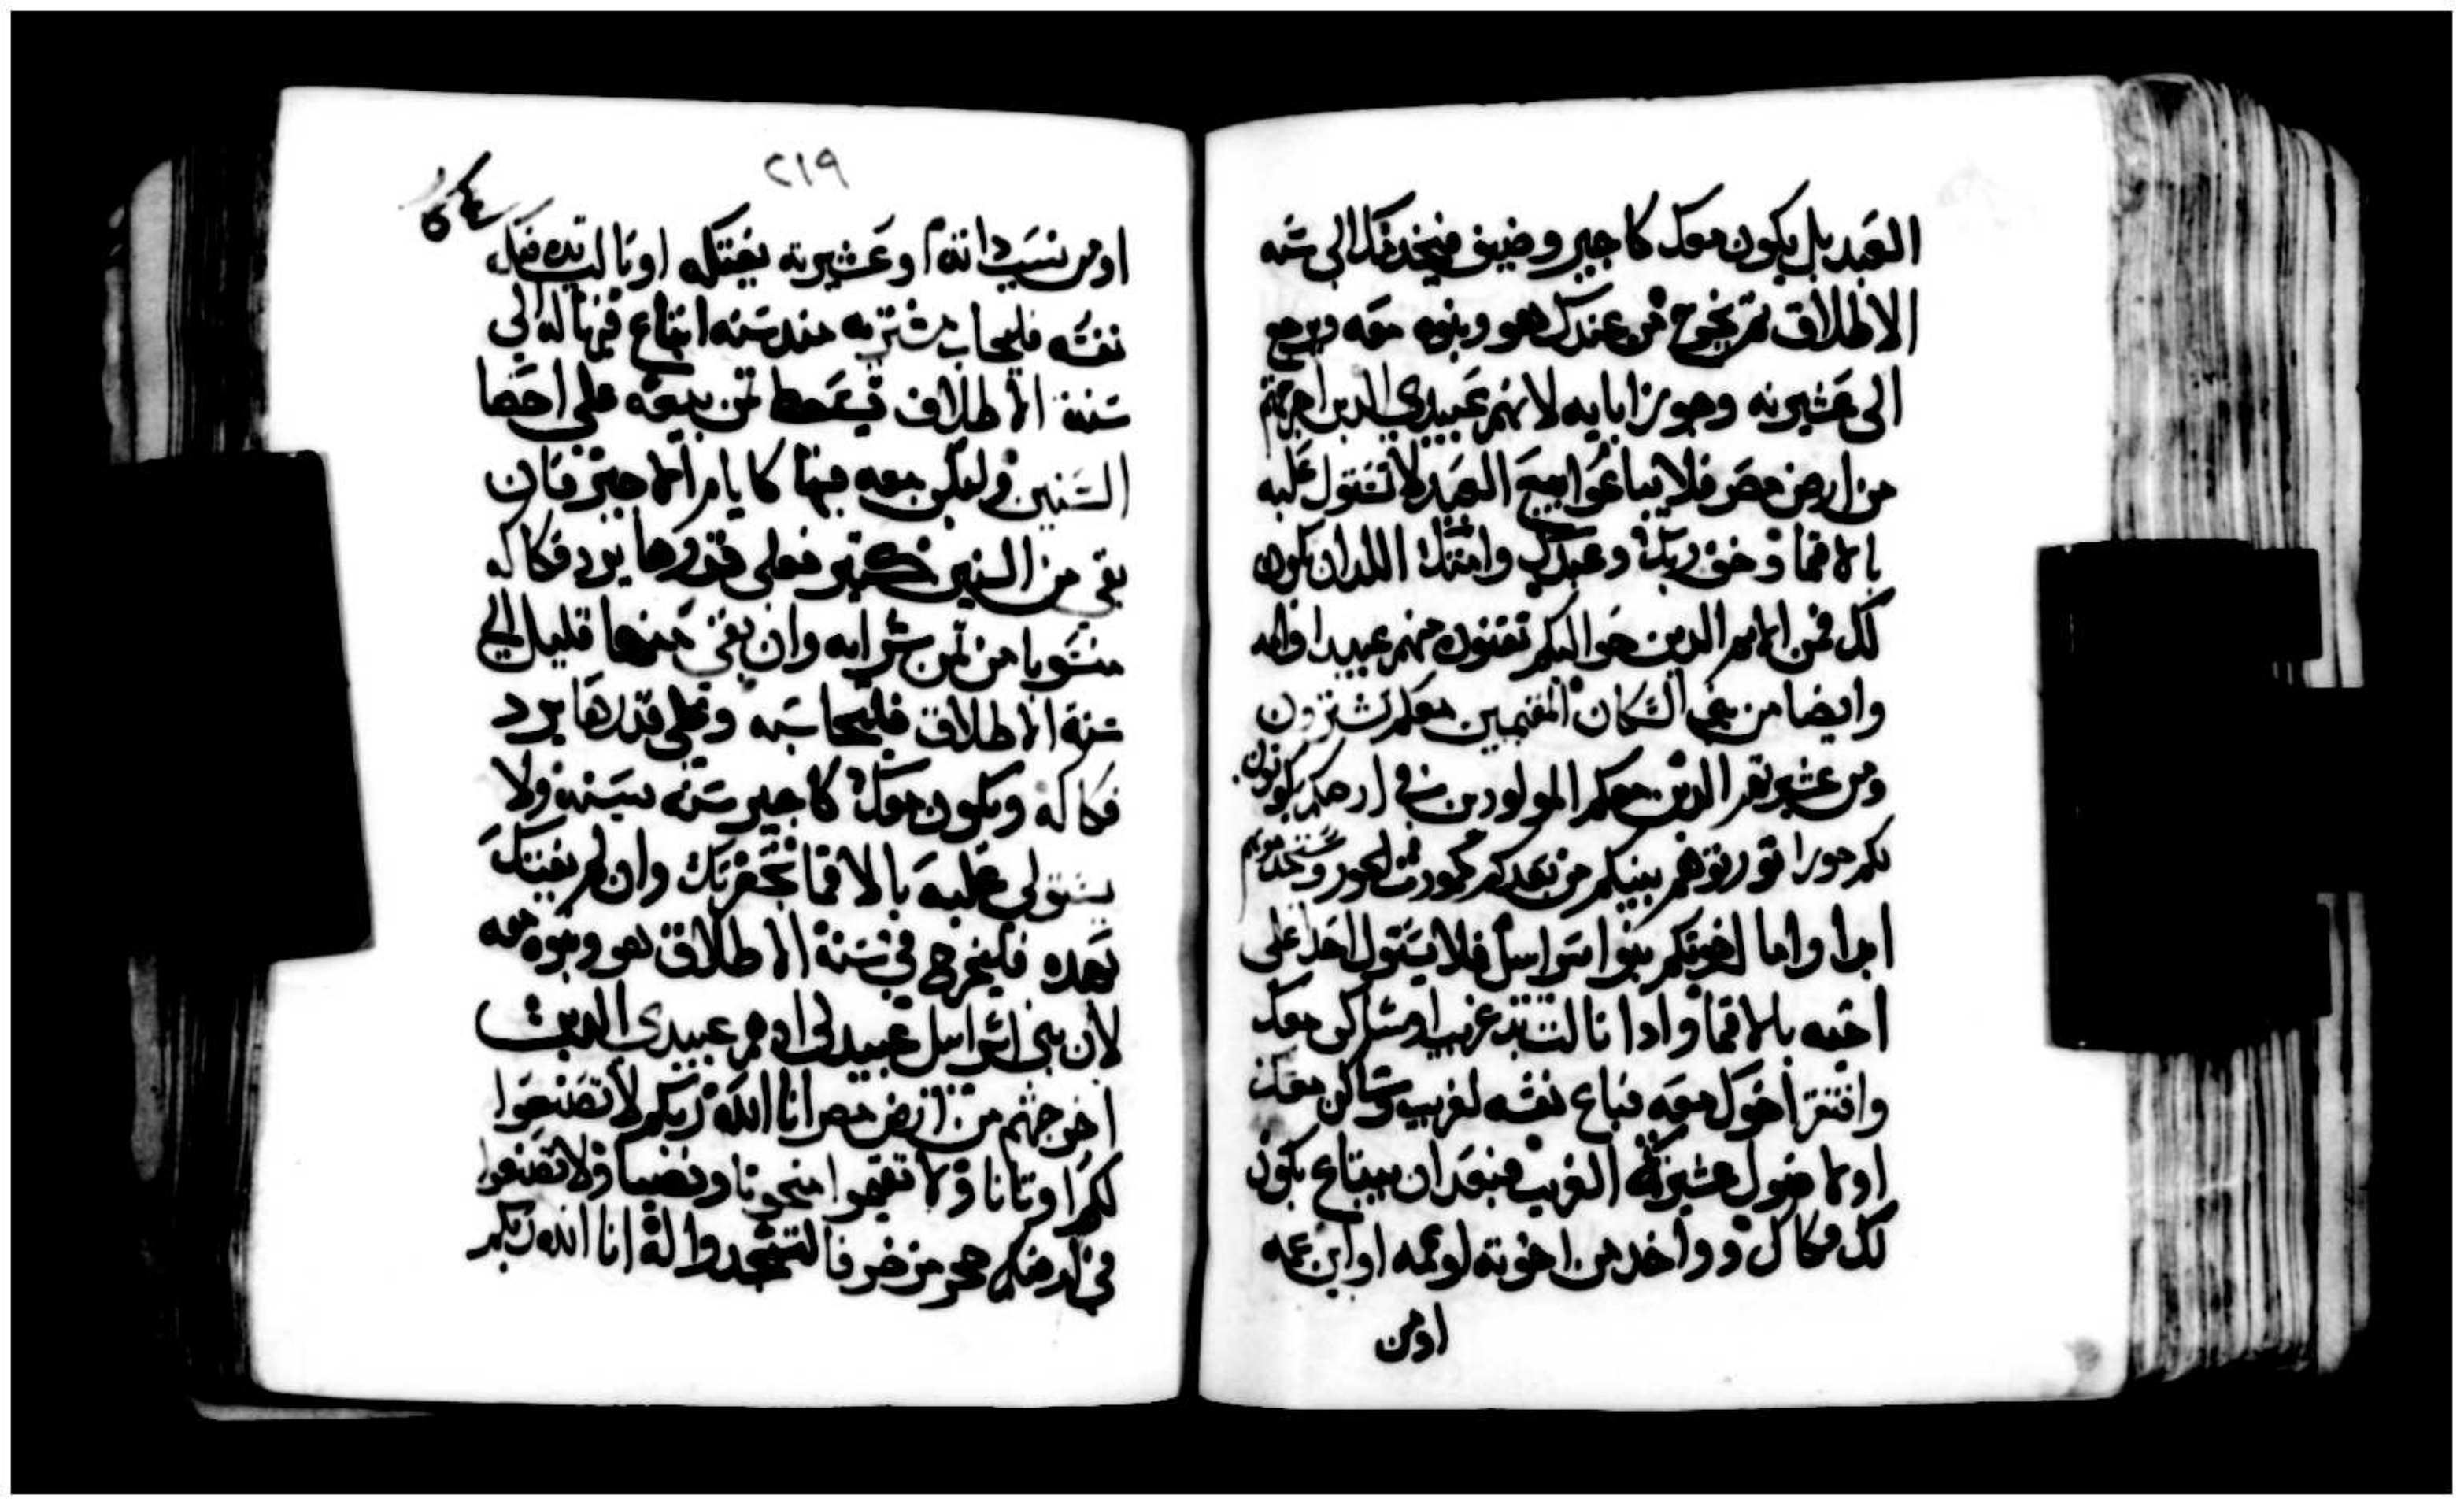 العبد بل يكون معك كاجير وضيف فيخدمك الى سنه
الاطلاق ثم يخرج من عندك هو وبنوه معه ويرجع
الى عشيرته وحوز ابايه لانهم عبيدي الدين اخرجتهم
من ارض مصر فلا يباعوا بيع العبيد لا تستول عليه
بالاقما وخف ربك وعبدك وامتك اللدان يكون
لك فمن الامم الدين حواليكم تقتنون منهم عبيدا وامه
وايضا من بني السكان المقيمين معكم تشترون
ومن عشيرتهم الدين معكم المولودين في ارضكم يكونون
لكم حوزا تورثوهم بينكم من بعدكم وتستخدموهم
ابدا واما اخوتكم بنوا اسراييل فلا يستول احد على
اخيه بالاقما وادا نالت يد غريب او ساكن معك
وافتقر اخوك معه فباع نفسه لغريب وساكن معك
او لاصول عشيرة الغريب فبعد ان يبتاع يكون
لك فكاك وواحد من اخوته او عمه او ابن عمه
او من
٢١٩
او من نسيب دانته او عشيرته يفتكه او نالت يده فك
نفسه فليحاسب مشتريه مند سنه ابتاع فيها له الى
سنة الاطلاق فيعط تمن بيعه على احصا
السنين وليكن معه فيها كايام الاجير فان
بقي من السنين كتير فعلى قدرها يرد فكاكه
من تمن شرايه وان بقي منها قليل الى
سنة الاطلاق فليحاسبه وعلى قدرها يرد
فكاكه ويكون معك كاجير سنه بسنه ولا
يستولي عليه بالاقما بحضرتك وان لم يفتك
بهده فليخرج في سنة الاطلاق هو وبنوه معه
لان بني اسراييل عبيد لي اد هم عبيدي الدين
اخرجتهم من ارض مصر انا الله ربكم لا تصنعوا
لكم اوتانا ولا تقيموا منحوتا ونصبا ولا تصنعوا
في ارضكم حجر مزخرفا لتسجدوا له انا الله ربكم